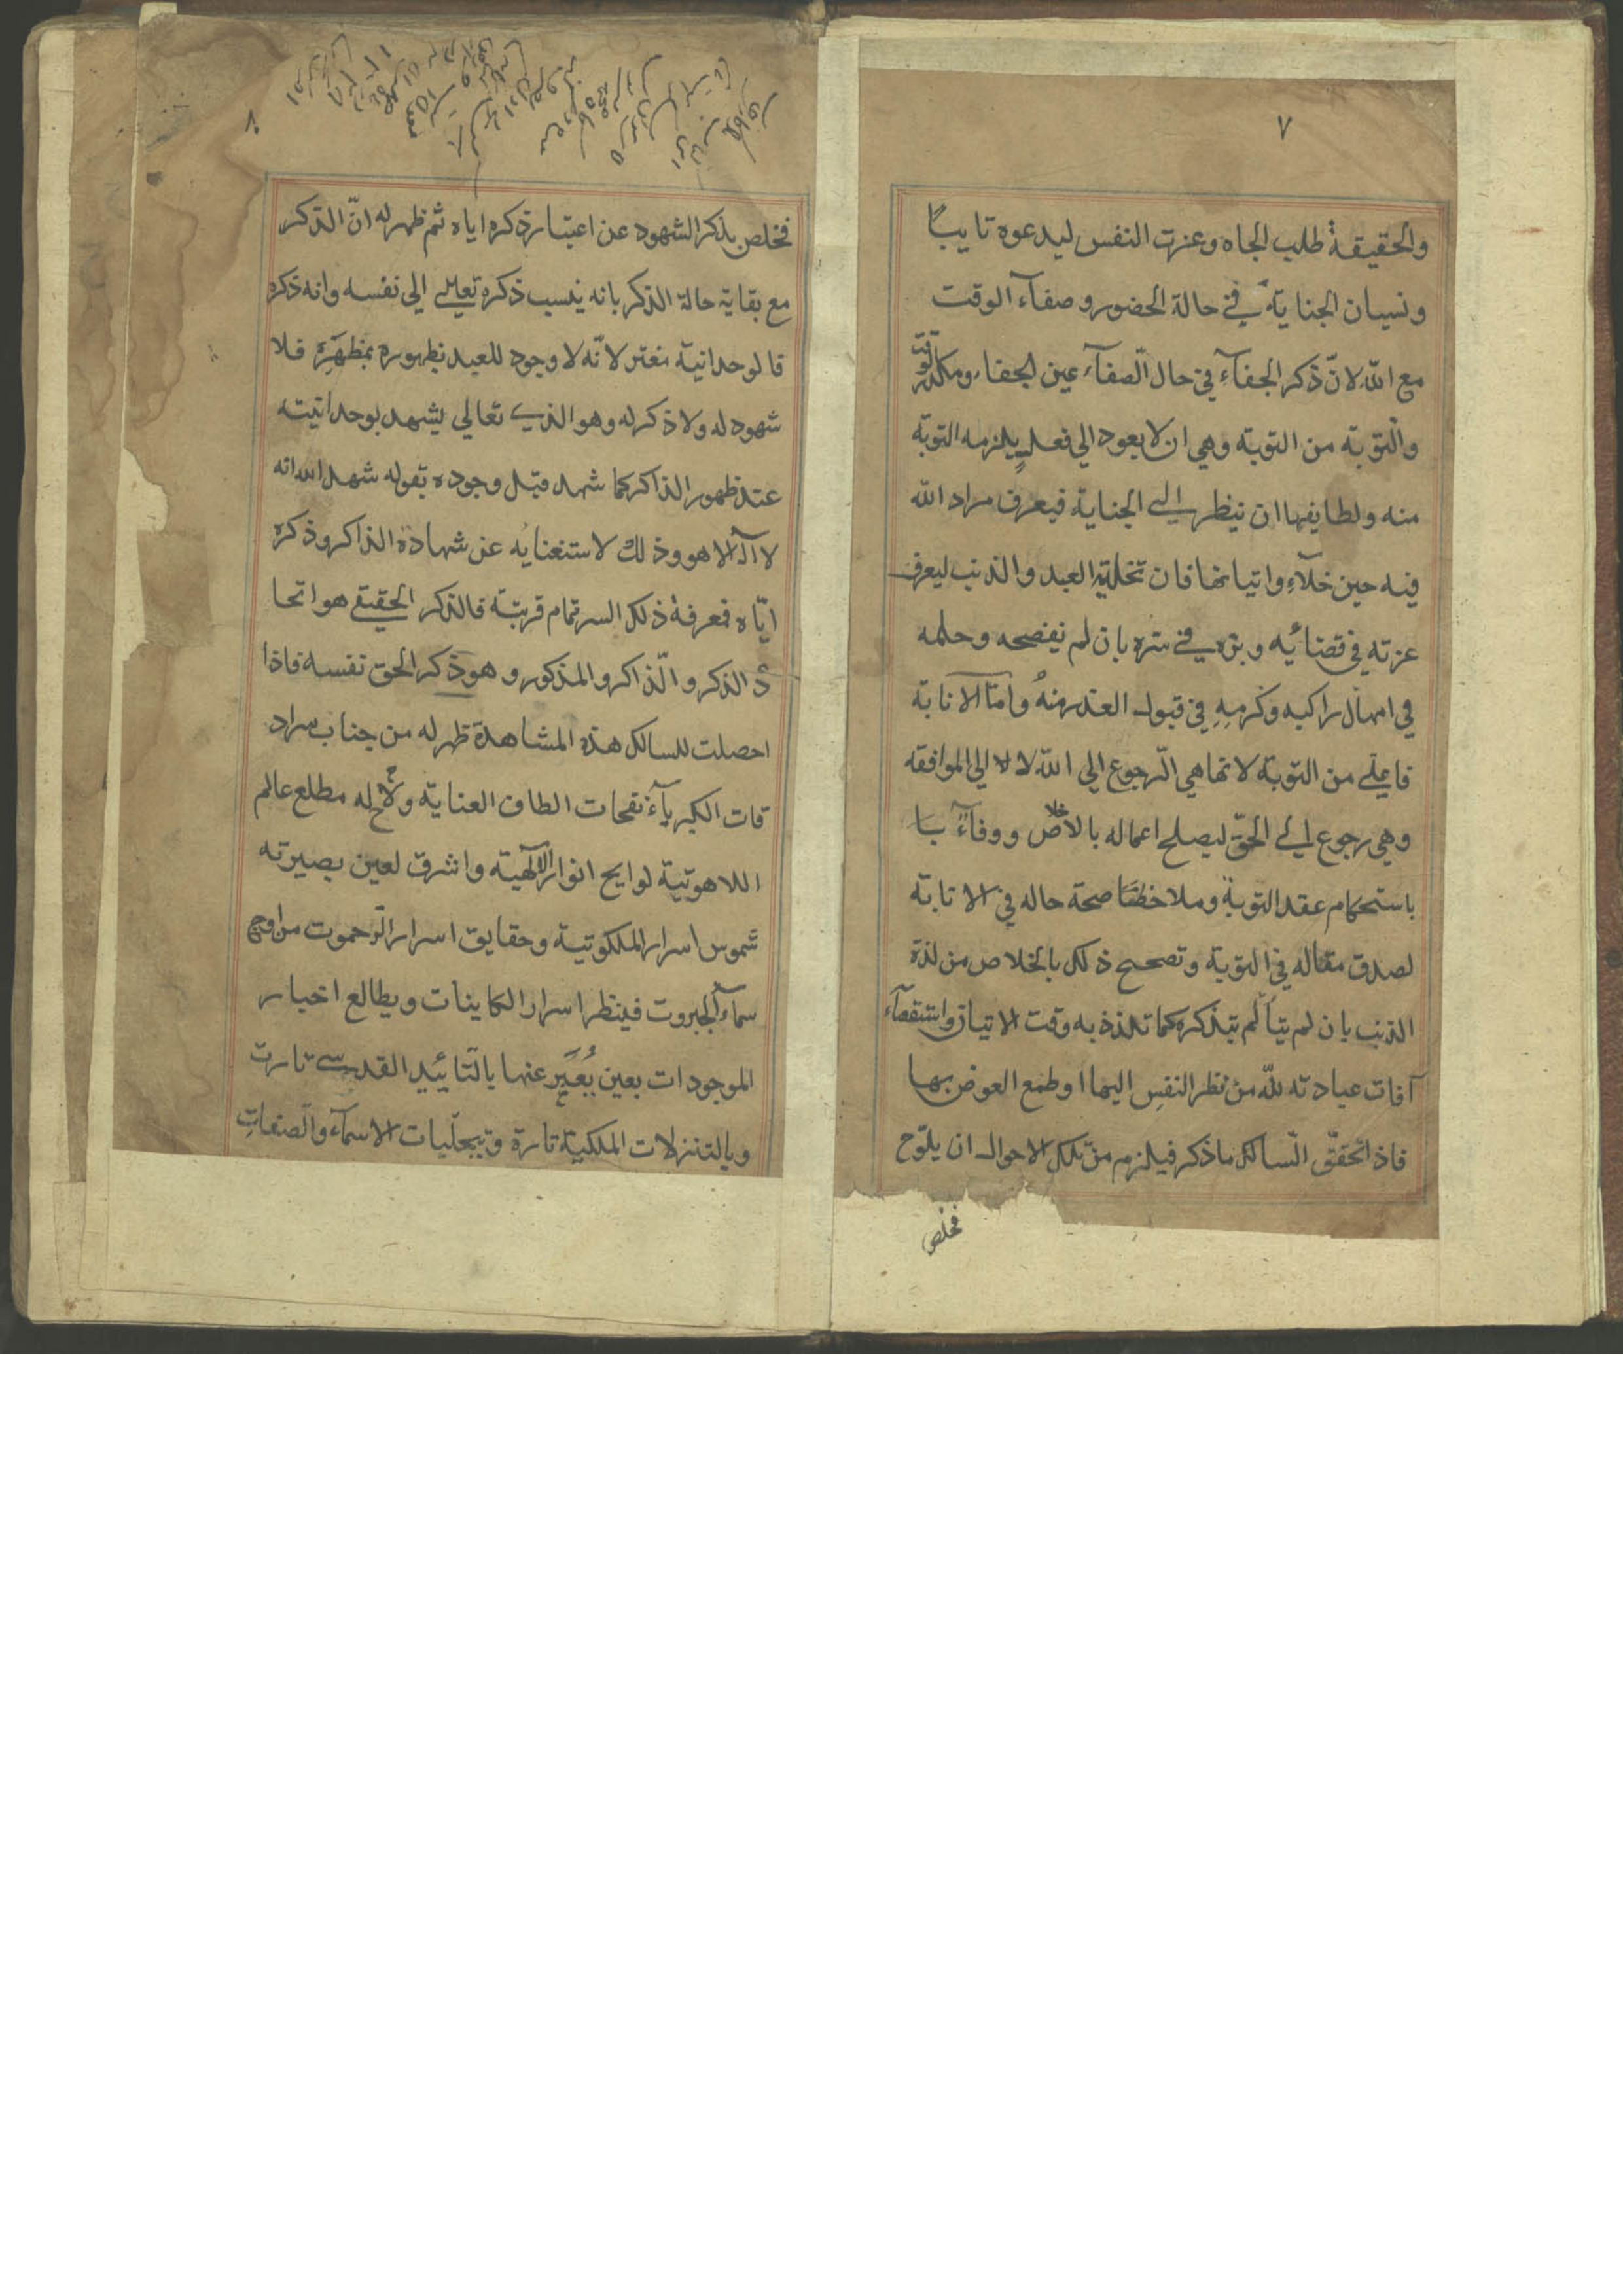 ٧
والحقيقة طلب الجاه وعزت النفس ليدعوه تايبًا
ونسيان الجناية في حالة الحضور وصفآء الوقت
مع الله لانّ ذكر الجفآء في حال الصّفآء عين الجفاء ومكدر الوقت
والتوبة من التوبة وهي ان لا يعود الي فعلٍ يلزمه التوبة
منه ولطايفها ان ينظر الي الجناية فيعرف مراد الله
فيه حين خلآه واتيانها فان تخلية العبد والذنب ليعرف
عزته في قضائيه وبره في ستره بان لم يفضحه وحلمه
في امهال راكبه وكرمهِ في قبول العذر منهُ وامّا الانابة
فاعلي من التوبة لانها هي الرّجوع الي الله لا لا الي الموافقه
وهي رجوع الي الحقّ ليصلح اعماله بالاخلاص ووفآءً با
باستحكام عقد التوبة وملاحظتًا صحة حاله في الانابة
لصدق مقاله في التوبة وتصحيح ذلك بالخلاص من لذة
الذنب بان لم يتألّم بتذكره كما تلذذ به وقت الاتيان واستقصآء
آفات عبادته للّه من نظر النفسِ اليها او طمع العوض بها
فاذا تحقّق السّالك ماذكر فيلزم من تلك الاحوال ان يلوّح
فخلص
٨
فخلص بذكر الشهود عن اعتبار ذكره اياه ثم ظهر له انّ الذكر
مع بقاية حالة الذكر بانه ينسب ذكره تعالي الي نفسه وانه ذكره
فالوحدانية مغتر لانّه لا وجود للعبد بظهوره بمظهَرِه فلا
شهود له ولا ذكر له وهو الذي تعالي يشهد بوحدانيته
عند ظهور الذاكر كما شهد قبل وجوده بقوله شهد الله انه
لا اله الا هو وذلك لاستغنايه عن شهادة الذاكر وذكره
ايّاه فمعرفة ذلك السر تمام قربتة فالذكر الحقيقي هو اتحا
دُ الذكر والّذاكر والمذكور وهو ذكر الحق نفسه فاذا
احصلت للسالك هذه المشاهدة ظهر له من جناب سراد
قات الكبريآء نفحات الطاف العناية ولاح له مطلع عالم
اللاهوتية لوايح انوار الالهية واشرق لعين بصيرته
شموس اسرار الملكوتية وحقايق اسرار الرّحموت من اوج
سمآء الجبروت فينظر اسرار الكاينات ويطالع اخبار
الموجودات بعين يُعبَّر عنها بالتّائيد القدسي تارت
وبالتنزلات الملكية تارة وبتجلّيات الاسمآء والصّفاتِ